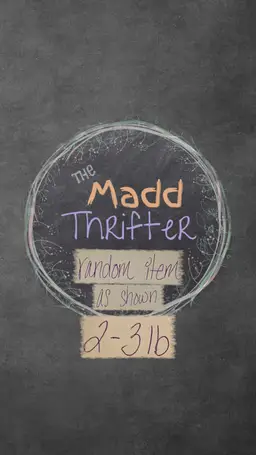 THE
Madd
THRifTER
random item
as shown
2-3lb